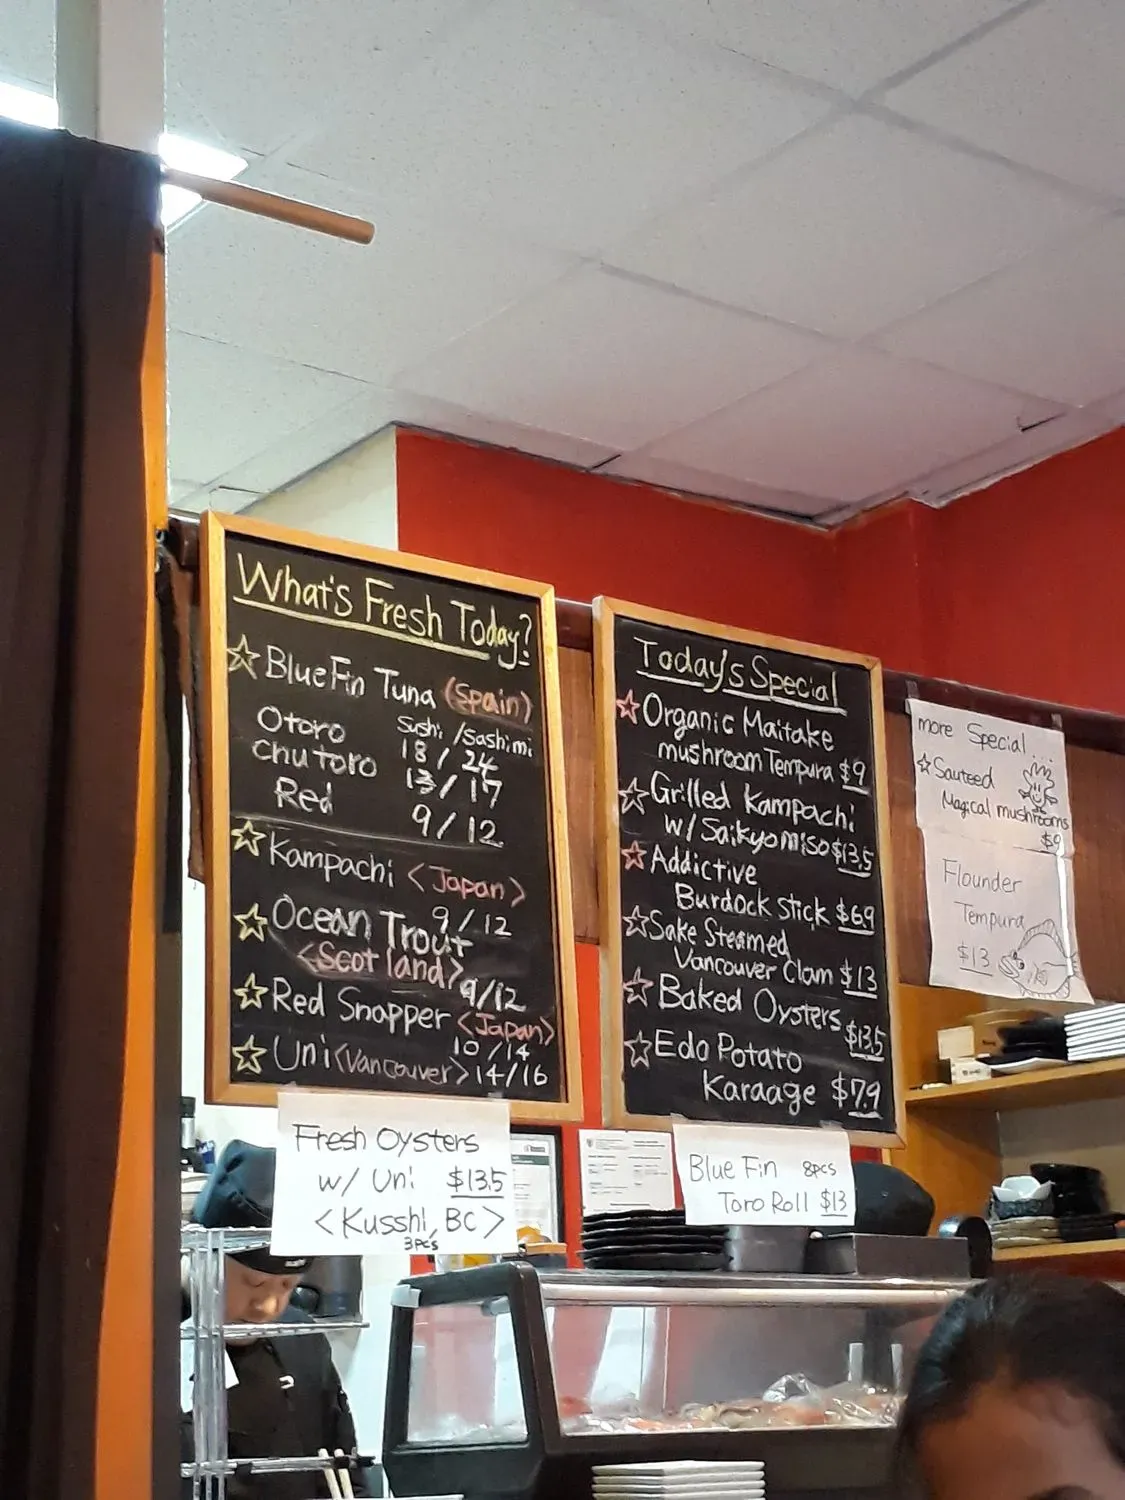 What's Fresh Today?
☆ Blue Fin Tuna (Spain)
Sushi / Sashimi
Otoro 18 / 24
chutoro 13 / 17
Red 9 / 12
☆ Kampachi <Japan>
9 / 12
☆ Ocean Trout
<Scotland> 9/12
☆ Red Snapper <Japan>
10 / 14
☆ Uni <Vancouver> 14/16
Fresh Oysters
w/ Uni $13.5
<Kusshi, BC>
3pcs
Today's Special
☆ Organic Maitake
mushroom Tempura $9
☆ Grilled Kampachi
w/ Saikyo miso $13.5
☆ Addictive
Burdock stick $6.9
☆ Sake Steamed
Vancouver Clam $13
☆ Baked Oysters
$13.5
☆ Edo Potato
Karaage $7.9
Blue Fin 8pcs
Toro Roll $13
more Special...
☆ Sauteed
Magical mushrooms
$9
Flounder
Tempura
$13